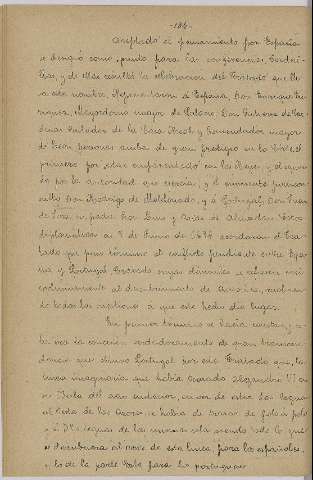 -136-
Aceptado el pensamiento por España
se designó como punto para la conferencia, Tordesi-
llas, y de ella resultó la celebración del Tratado que lle-
va este nombre. Representaron á España, Don Enrique En-
riquez, Mayordomo mayor de Palacio, Don Gutierre de Cár-
denas Contador de la Casa Real y Comendador mayor
de Leon personas ambas de gran prestigio en la Corte, el
primero por estar emparentado con los Reyes, y el segun-
do por la autoridad que ejercía, y el eminente juriscon-
sulto Don Rodrigo de Maldonado, y á Portugal, Don Juan
de Sosa, su padre Don Ruy y Arias de Almadana. Estos
diplomáticos en 7 de Junio de 1494 acordaron el Tra-
tado que puso término al conflicto pendiente entre Espa-
ña y Portugal
al descubrimiento de America,
todas las cuestiones á que este hecho dió lugar.
En primer término se hacía constar
la concesión verdaderamente de gran trascen-
dencia que obtuvo Portugal por este Tratado
linea imaginaria que había trazado Alejandro VI en
su Bula del año anterior, en vez de estar 100 leguas
al Oeste de las Azores se había de trazar de polo á polo
á 370 leguas de las mismas islas siendo todo lo que
se descubriera al oeste de esta linea, para los españoles
y lo de la parte Este para los portugueses